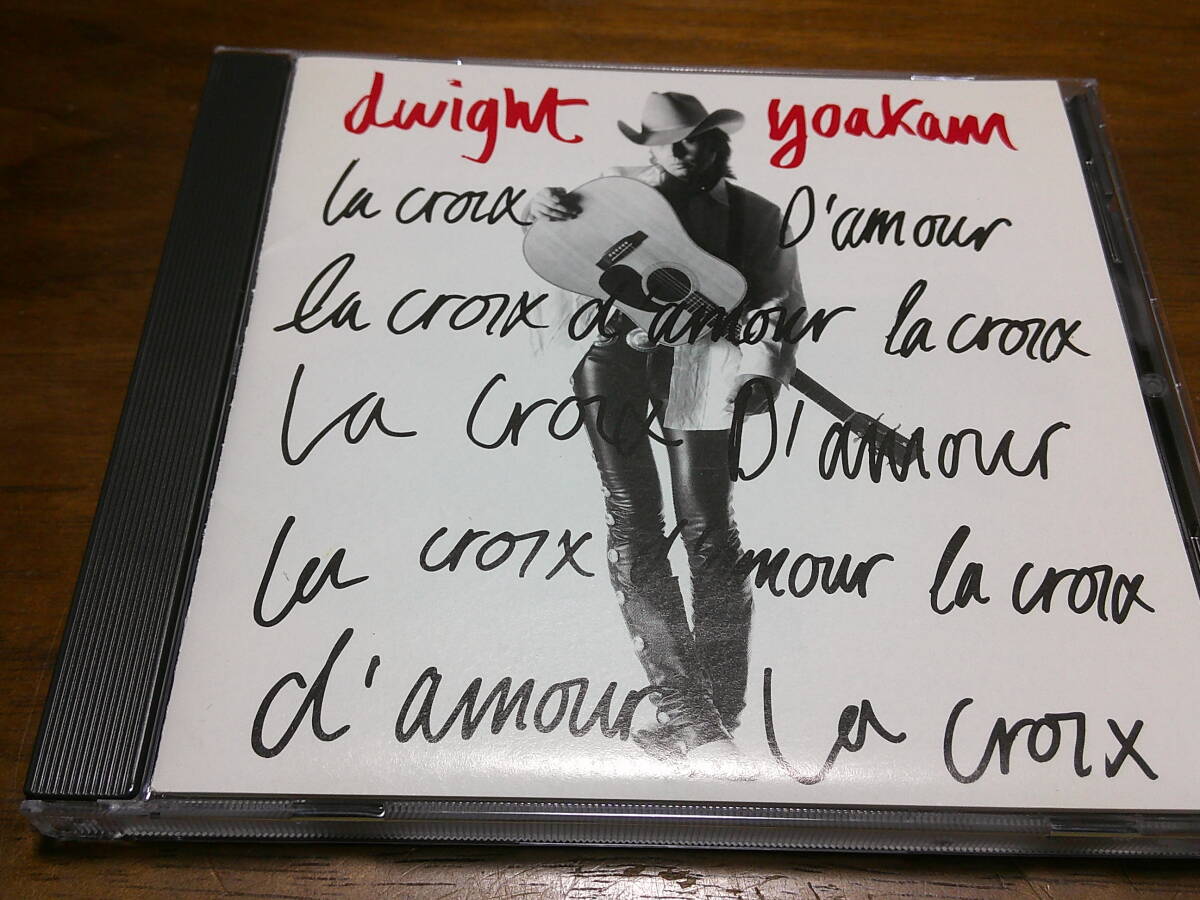 dwight yoakam
la croix D'amour
la croix d'amour la croix
La croix D'amour
La croix d'amour la croix
d'amour La croix